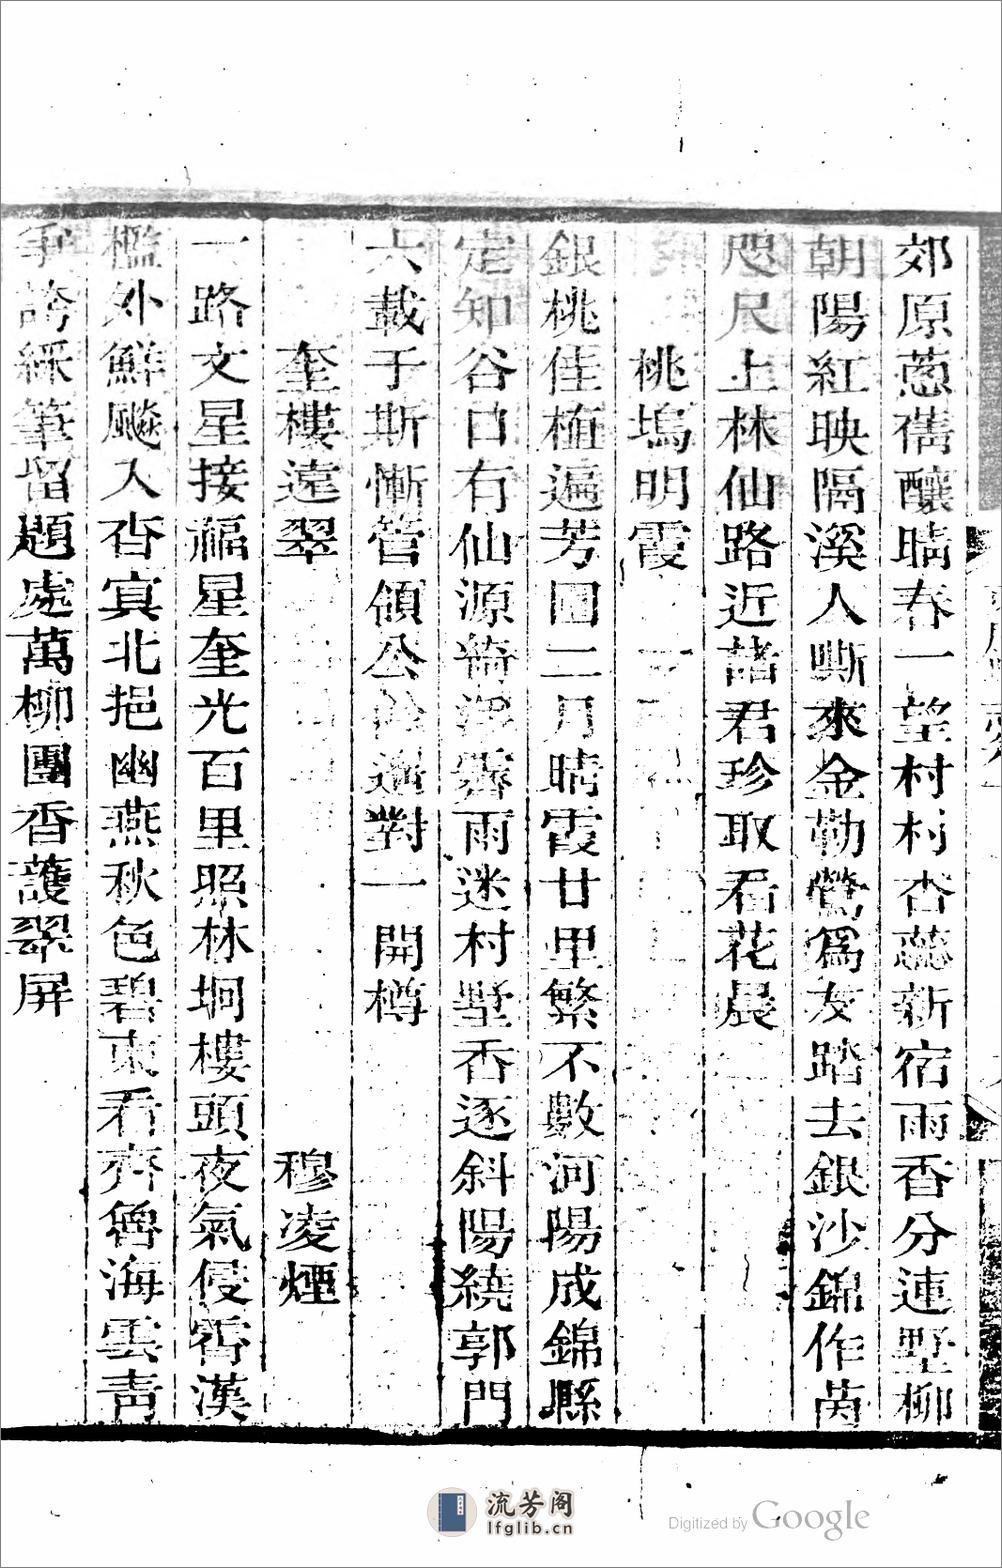 郊原蔥蒨釀晴春一望村村杏蕊新宿雨香分連墅柳
朝陽紅映隔溪人嘶來金勒鶯爲友踏去銀沙錦作茵
咫尺上林仙路近諸君珍取看花晨
桃塢明霞
銀桃佳植遍芳園二月晴霞廿里繁不數河陽成錦縣
定知谷口有仙源霽雨迷村墅香逐斜陽繞郭門
六載于斯慚管領公對一開樽
奎樓遠翠 穆凌煙
一路文星接福星奎光百里照林坰樓頭夜氣侵霄漢
檻外鮮飈入杳冥北挹幽燕秋色碧東看齊魯海雲靑
爭誇綵筆留題處萬柳團香護翠屏
流芳阁
lfglib.cn
Digitized by Google